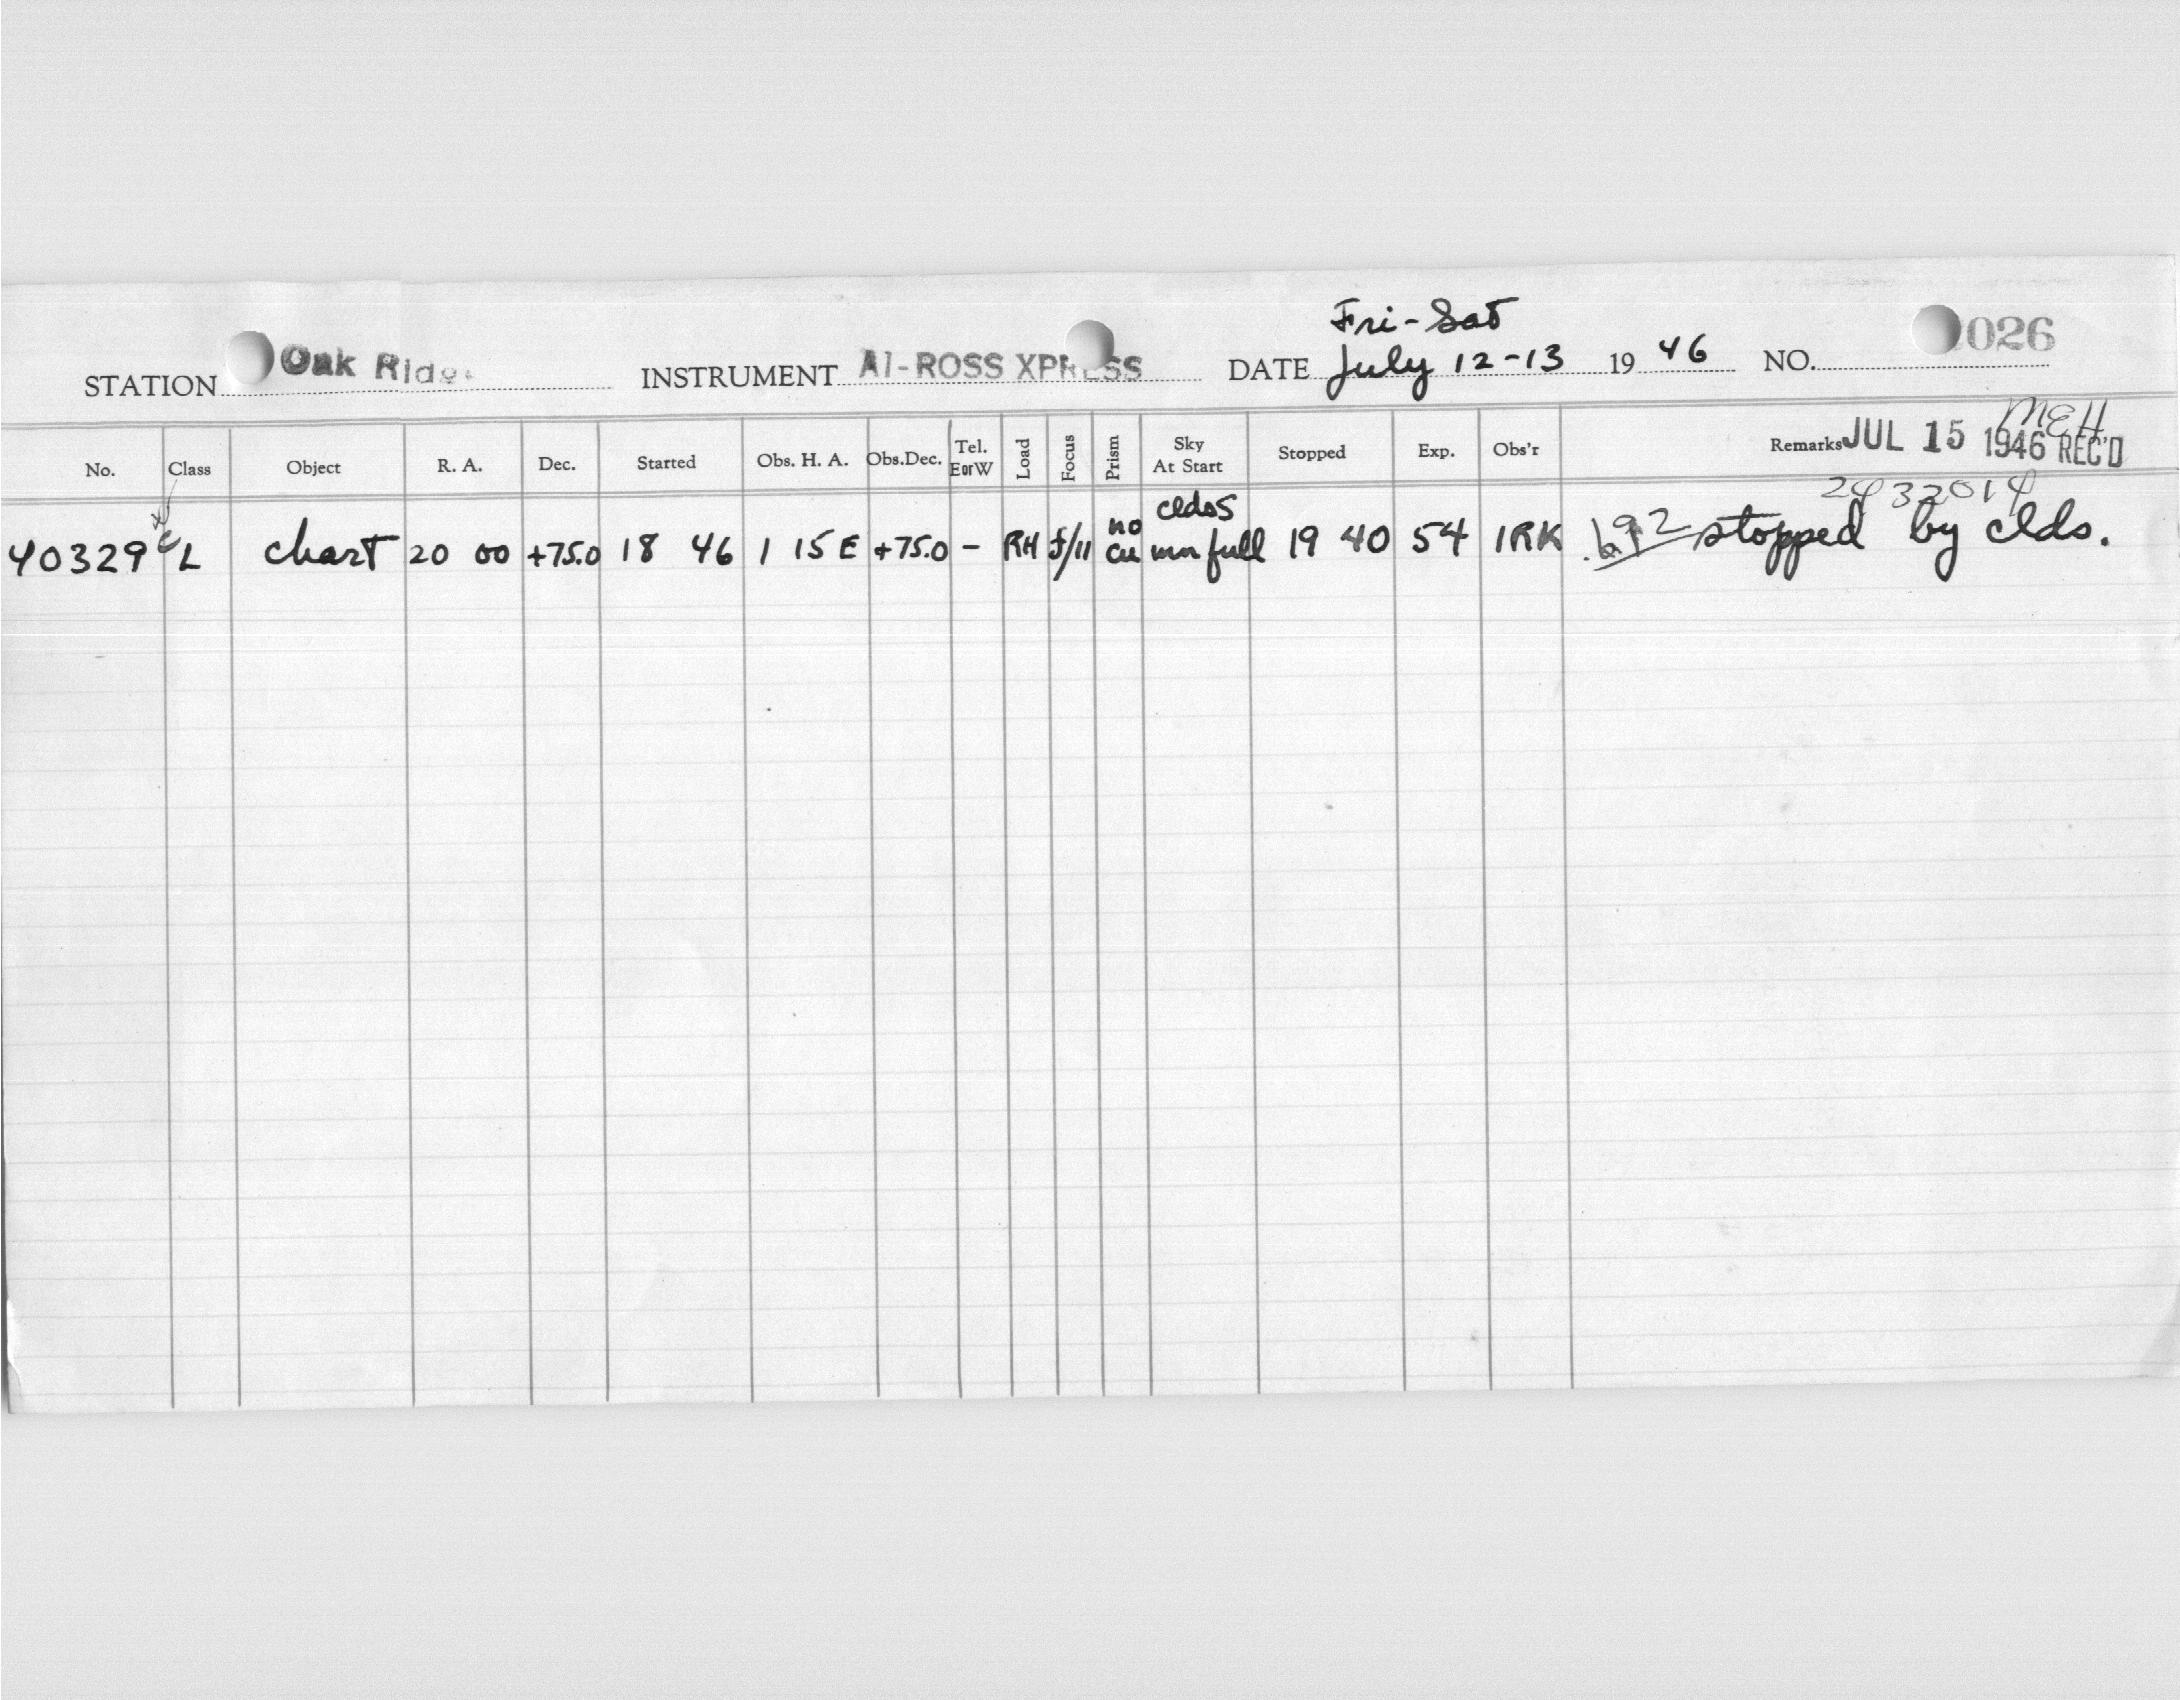 Fri-Sat
STATION Oak Ridge INSTRUMENT AI-ROSS XPRESS DATE July 12-13 1946 NO. 026
No. Class Object R. A. Dec. Started Obs. H. A. Obs.Dec. Tel. EorW Load Focus Prism Sky At Start Stopped Exp. Obs'r Remarks JUL 15 1946 REC'D MEH
2432014
no cldsS
40329 L chart 20 00 +75.0 18 46 1 15 E +75.0 - RH f/11 cu mn full 19 40 54 IRK .692 stopped by clds.